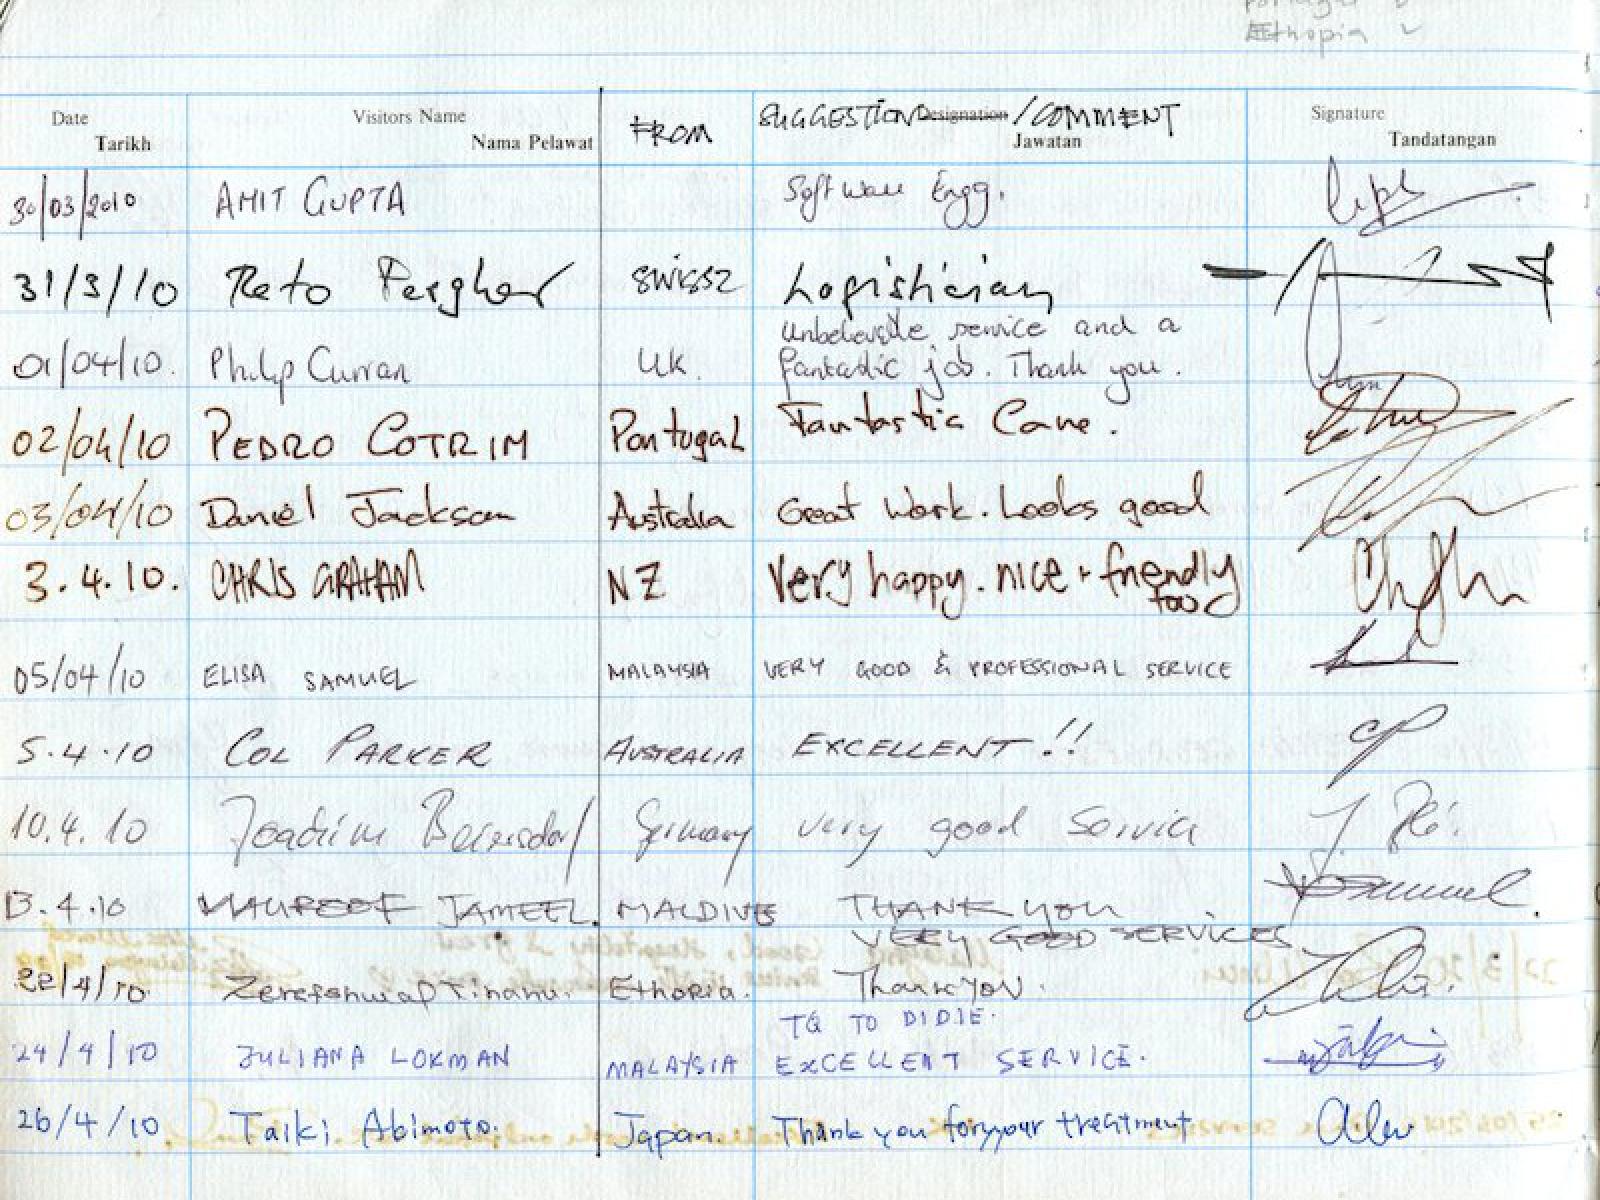 Ethopia
Date Tarikh Visitors Name Nama Pelawat FROM SUGGESTION Designation /COMMENT Jawatan Signature Tandatangan
30/03/2010 AMIT GUPTA Software Engg.
31/3/10 Reto Pergher SWISSZ Logistician
01/04/10. Philip Curran UK. Unbelievable service and a
fantastic job. Thank you.
02/04/10 PEDRO COTRIM Portugal Fantastic Care.
03/04/10 Daniel Jackson Australia Great Work. Looks good
3.4.10. CHRIS GRAHAM NZ Very happy. nice + friendly
too
05/04/10 ELISA SAMUEL MALAYSIA VERY GOOD & PROFESSIONAL SERVICE
5.4.10 COL PARKER AUSTRALIA EXCELLENT!! CP
10.4.10 Joachim Germany very good Service
13.4.10 JAMEEL. MALDIVE THANK YOU
VERY GOOD SERVICES
22/4/10 Ethopia. Thank YOU.
24/4/10 JULIANA LOKMAN MALAYSIA TQ TO DIDIE.
EXCELLENT SERVICE.
26/4/10 Taiki Abimoto. Japan. Thank you for your treatment